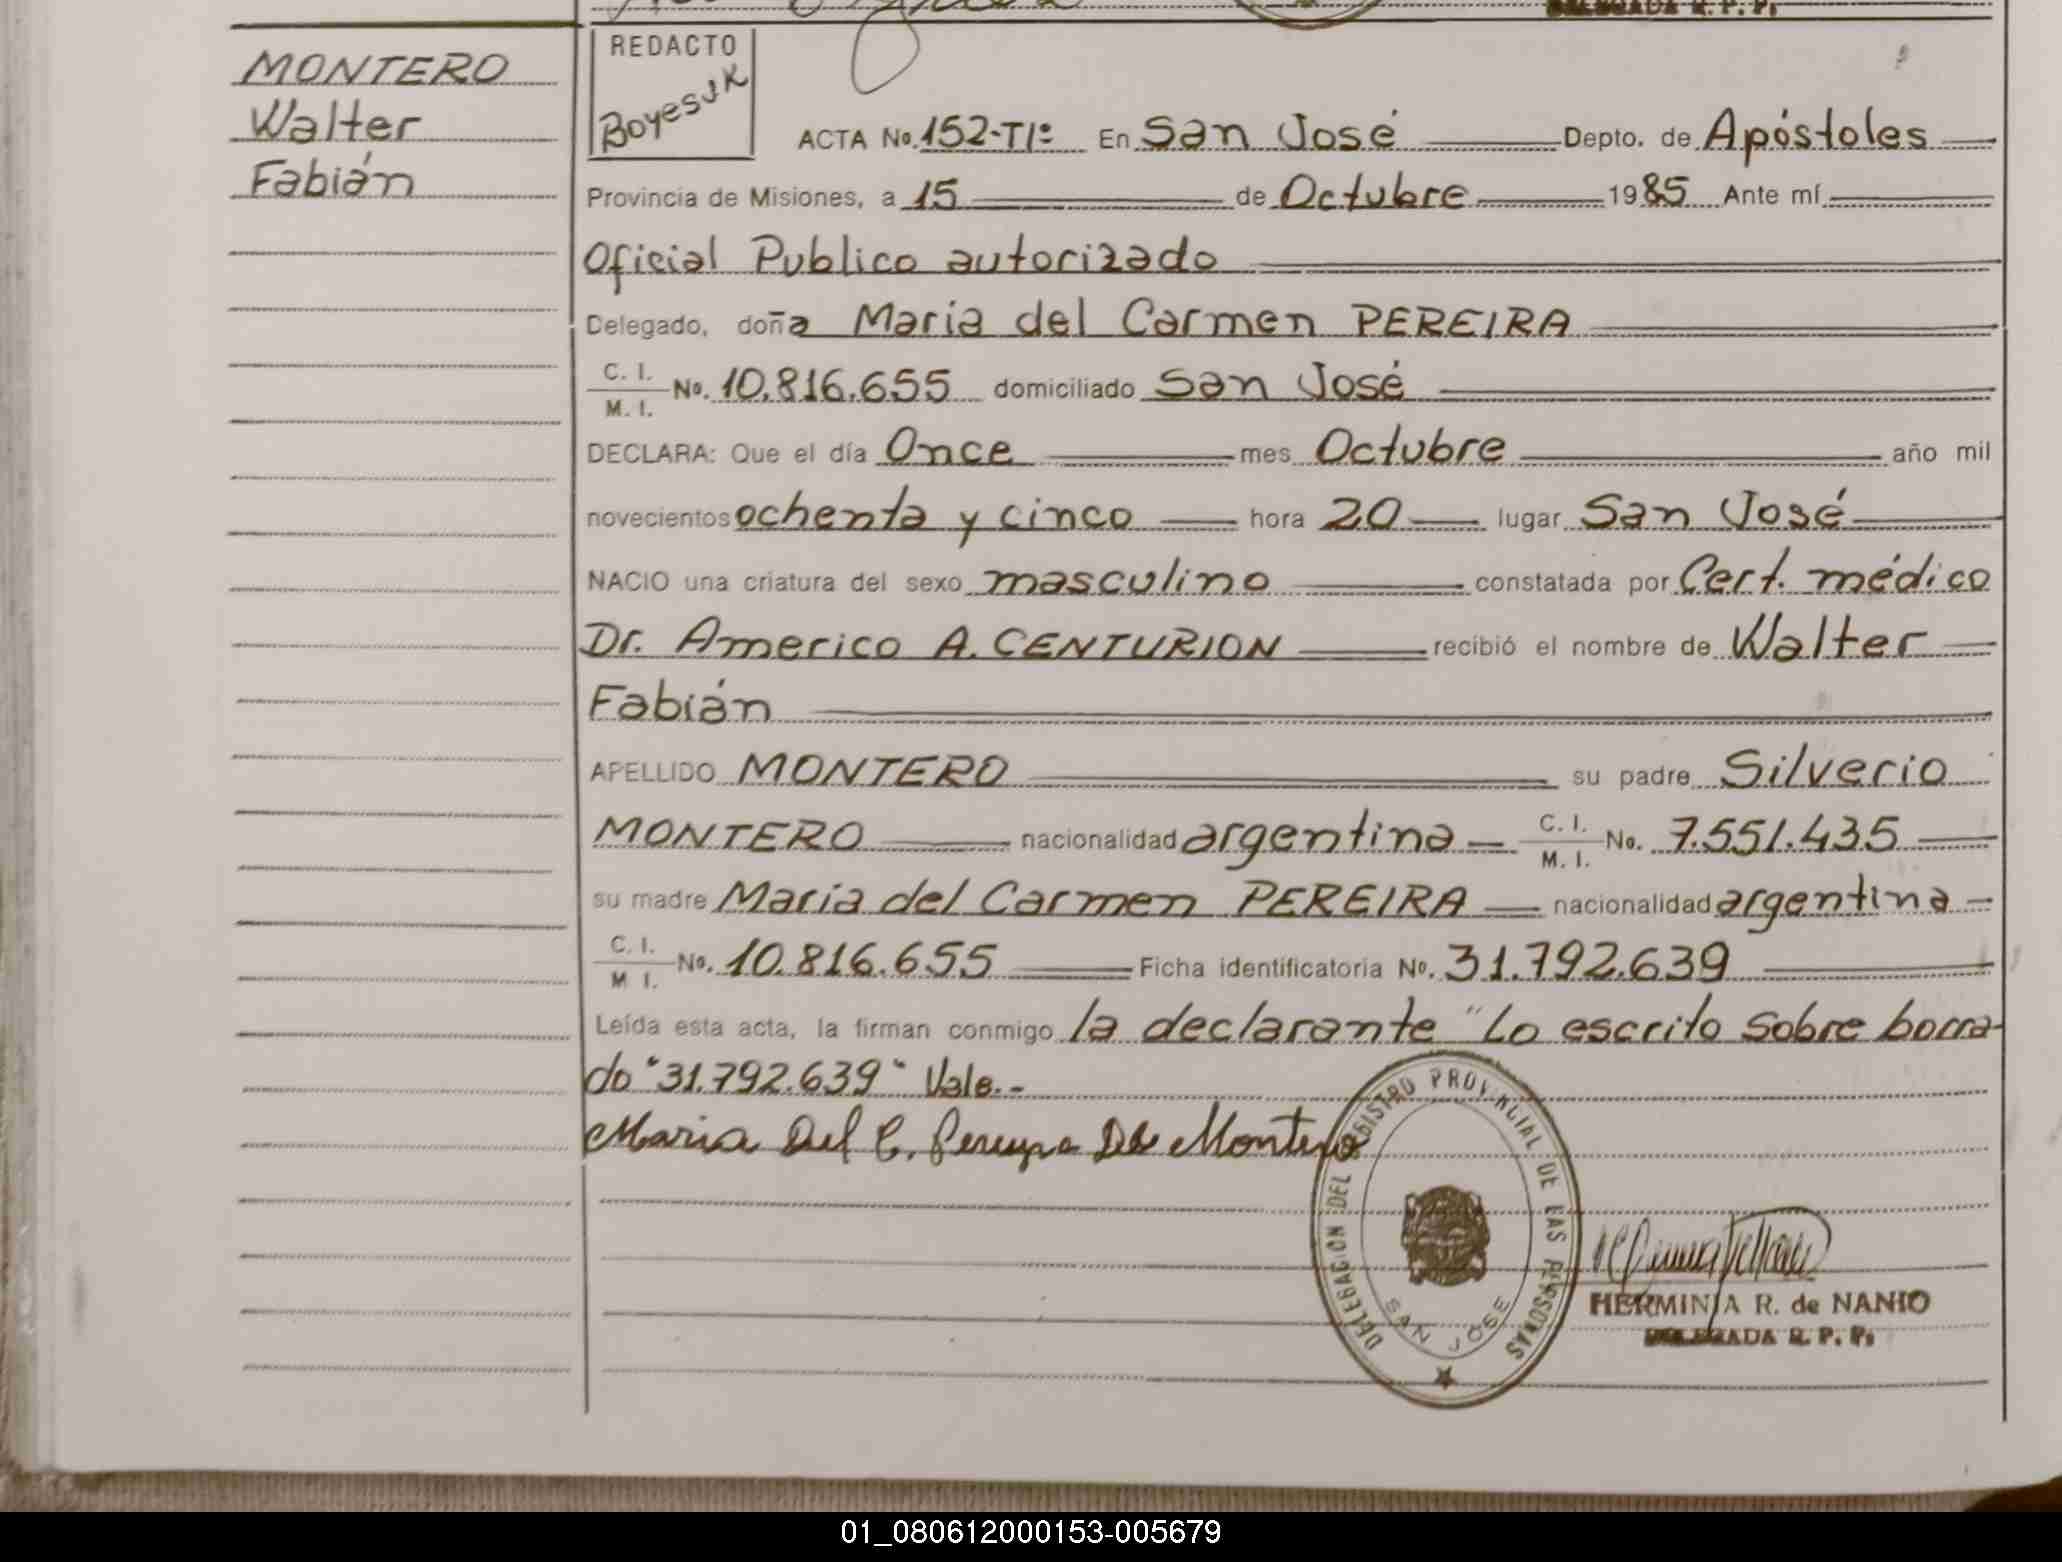 DELEGADA R. P. P.
MONTERO
Walter
Fabián
REDACTO
BoyesuK
ACTA No. 152-TIº En San José Depto. de Apóstoles
Provincia de Misiones, a 15 de Octubre 1985 Ante mí
Oficial Publico autorizado
Delegado, doña Maria del Carmen PEREIRA
C. I. / M. I. No. 10.816.655 domiciliado San José
DECLARA: Que el día Once mes Octubre año mil
novecientos ochenta y cinco hora 20 lugar San José
NACIO una criatura del sexo masculino constatada por Cert. médico
Dr. Americo A. CENTURION recibió el nombre de Walter
Fabián
APELLIDO MONTERO su padre Silverio
MONTERO nacionalidad argentina C. I. / M. I. No. 7.551.435
su madre Maria del Carmen PEREIRA nacionalidad argentina
C. I. / M I. No. 10.816.655 Ficha identificatoria No. 31.792.639
Leída esta acta, la firman conmigo la declarante "Lo escrito sobre borra-
do "31.792.639" Vale.-
Maria Del C. Pereyra De Montero
DELEGACION DEL REGISTRO PROVINCIAL DE LAS PERSONAS
SAN JOSE
HERMINIA R. de NANIO
DELEGADA R. P. P.
01_080612000153-005679